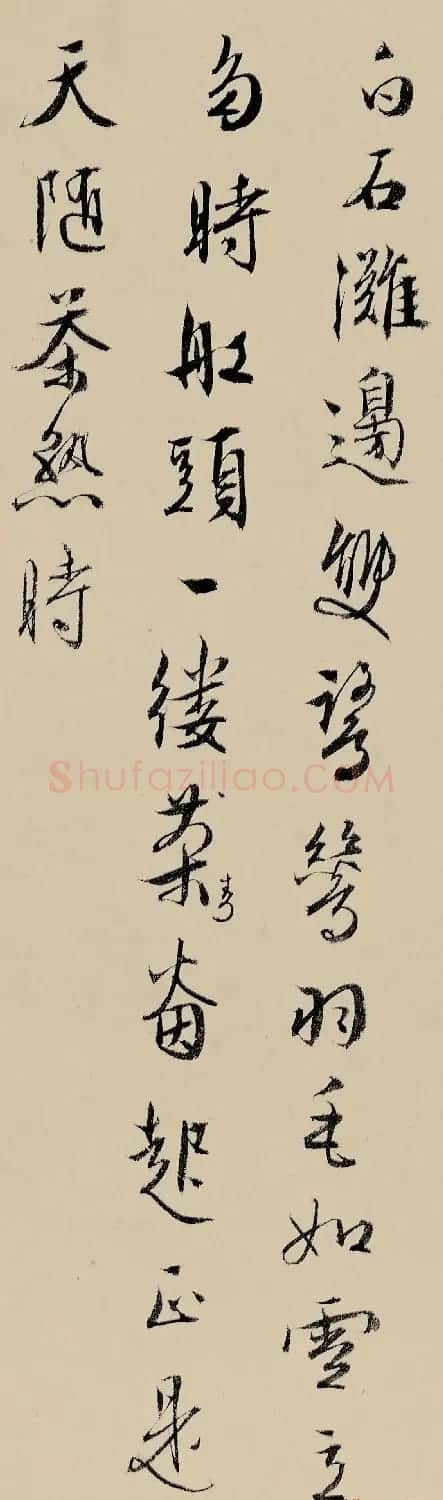 白石灘邊雙鷺鷥羽毛如雪立
多時船頭一縷青烟起正是
天隨茶熟時
Shufaziliao.COM